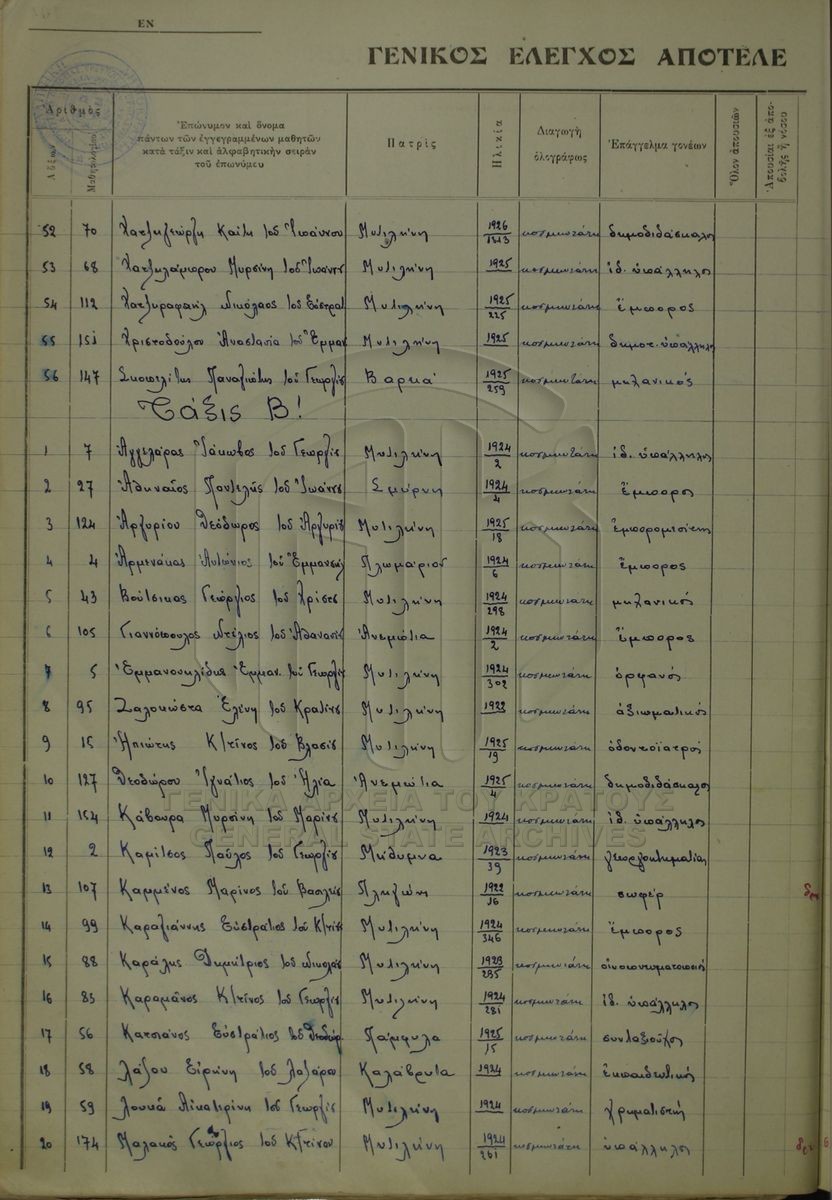 ΕΝ
ΓΕΝΙΚΟΣ ΕΛΕΓΧΟΣ ΑΠΟΤΕΛΕ
Ἀριθμὸς
Αὔξων
Μαθητολογίου
Ἐπώνυμον καὶ ὄνομα
πάντων τῶν ἐγγεγραμμένων μαθητῶν
κατὰ τάξιν καὶ ἀλφαβητικὴν σειρὰν
τοῦ ἐπωνύμου
Πατρὶς
Ἡλικία
Διαγωγὴ
ὁλογράφως
Ἐπάγγελμα γονέων
Ὅλον ἀπουσιῶν
Ἀπουσίαι ἐξ ἀπο-
βολῆς ἢ νόσου
52 70 Χατζηγεώργη Καίτη τοῦ Ἰωάννου Μυτιλήνη 1926 κοσμιωτάτη δημοδιδάσκαλος
53 68 Μυρσίνη τοῦ Ἰωάνν Μυτιλήνη 1925 κοσμιωτάτη ἰδ. ὑπάλληλος
54 112 Χατζηραφαὴλ Νικόλαος τοῦ Εὐστρατ Μυτιλήνη 1925/225 κοσμιωτάτη ἔμπορος
55 151 Χριστοδούλου Ἀναστασία τοῦ Ἐμμαν Μυτιλήνη 1925 κοσμιωτάτη δημοτ. ὑπάλληλος
56 147 Σκοπελίτης Παναγιώτης τοῦ Γεωργίου Βαρειά 1925/259 κοσμιωτάτη μηχανικός
Τάξις Β!
1 7 Ἀγγελάρας Ἰάκωβος τοῦ Γεωργίου Μυτιλήνη 1924/2 κοσμιωτάτη ἰδ. ὑπάλληλος
2 27 Ἀθηναῖος Παντελῆς τοῦ Ἰωάννου Σμύρνη 1924/4 κοσμιωτάτη ἔμπορος
3 124 Ἀργυρίου Θεόδωρος τοῦ Ἀργυρίου Μυτιλήνη 1925/18 κοσμιωτάτη ἐμπορομεσίτης
4 4 Ἀρμενάκας Ἀντώνιος τοῦ Ἐμμανουὴλ Πλωμάριον 1924/6 κοσμιωτάτη ἔμπορος
5 43 Βούτσικας Γεώργιος τοῦ Χρίστου Μυτιλήνη 1924/298 κοσμιωτάτη μηχανικός
6 105 Γιαννόπουλος Στέλιος τοῦ Ἀθανασίου Ἀνεμώτια 1924/2 κοσμιωτάτη ἔμπορος
7 5 Ἐμμανουηλίδης Ἐμμαν. τοῦ Γεωργίου Μυτιλήνη 1924/302 κοσμιωτάτη ὀρφανός
8 95 Ζαλοκώστα Ἑλένη τοῦ Κρατίνου Μυτιλήνη 1922 κοσμιωτάτη ἀξιωματικός
9 15 Ἠπιώτης Κ/τῖνος τοῦ Βλασίου Μυτιλήνη 1925/19 κοσμιωτάτη ὀδοντοϊατρός
10 127 Θεοδώρου Ἰγνάτιος τοῦ Ἠλία Ἀνεμώτια 1925/4 κοσμιωτάτη δημοδιδάσκαλος
11 154 Κάβουρα Μυρσίνη τοῦ Μαρίνου Μυτιλήνη 1924 κοσμιωτάτη ἰδ. ὑπάλληλος
12 2 Καμίτσος Παῦλος τοῦ Γεωργίου Μήθυμνα 1923/39 κοσμιωτάτη γεωργοκτηματίας
13 107 Καμμένος Μαρίνος τοῦ Βασιλείου Πληγώνι 1922/16 κοσμιωτάτη σωφέρ
14 99 Καραγιάννης Εὐστράτιος τοῦ Κ/τίνου Μυτιλήνη 1924/346 κοσμιωτάτη ἔμπορος
15 88 Καράλης Δημήτριος τοῦ Νικολάου Μυτιλήνη 1923/285 κοσμιωτάτη οἰνοπνευματοποιός
16 85 Καραμάνος Κ/τῖνος τοῦ Γεωργίου Μυτιλήνη 1924/281 κοσμιωτάτη ἰδ. ὑπάλληλος
17 56 Κατσιάνος Εὐστράτιος τοῦ Θεοδώρ. Πάμφυλα 1925/15 κοσμιωτάτη συνταξιοῦχος
18 58 Λάζου Εἰρήνη τοῦ Λαζάρου Καλάβρυτα 1924 κοσμιωτάτη ἐκπαιδευτικός
19 59 Λουκᾶ Αἰκατερίνη τοῦ Γεωργίου Μυτιλήνη 1924 κοσμιωτάτη χρηματιστής
20 174 Μαλακὸς Γεώργιος τοῦ Κ/τίνου Μυτιλήνη 1924/261 κοσμιωτάτη ὑπάλληλος
ΓΕΝΙΚΑ ΑΡΧΕΙΑ ΤΟΥ ΚΡΑΤΟΥΣ
GENERAL STATE ARCHIVES